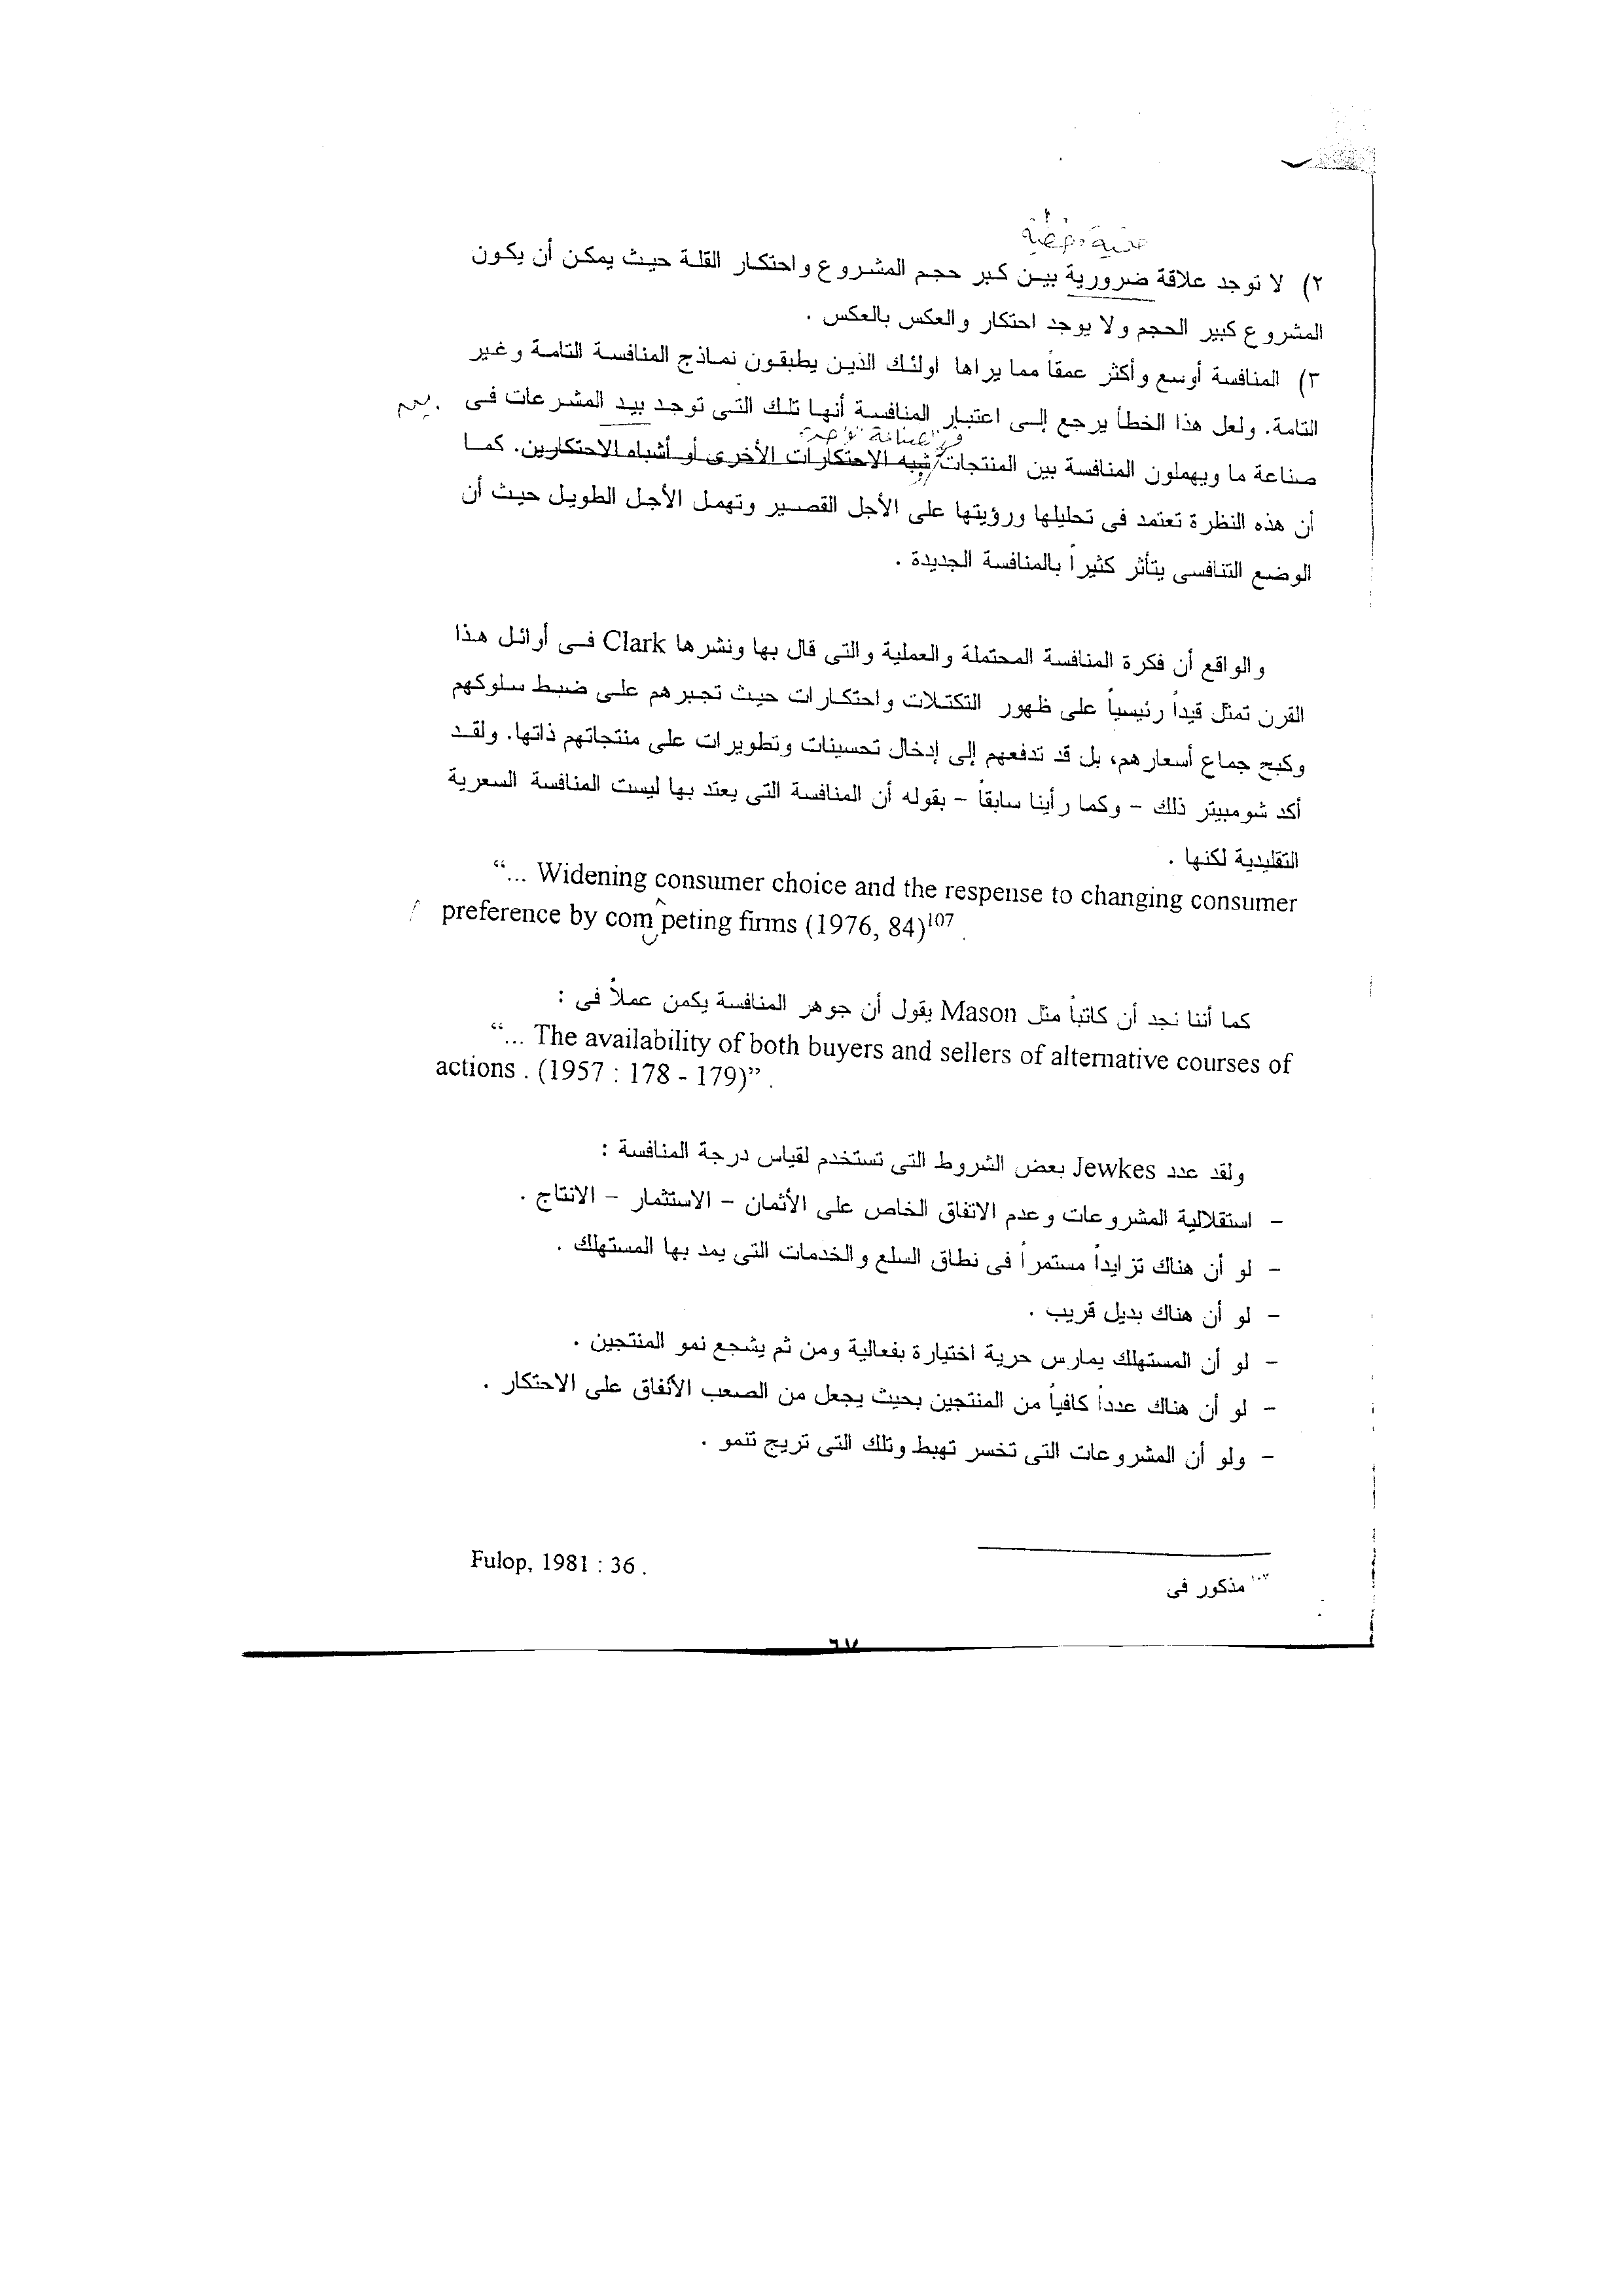 ٢) لا توجد علاقة ضرورية بين كبر حجم المشروع واحتكار القلة حيث يمكن أن يكون
المشروع كبير الحجم ولا يوجد احتكار والعكس بالعكس .
٣) المنافسة أوسع وأكثر عمقاً مما يراها اولئك الذين يطبقون نماذج المنافسة التامة وغير
التامة. ولعل هذا الخطأ يرجع إلى اعتبار المنافسة أنها تلك التى توجد بيد المشرعات فى
فى الصناعة الواحدة
صناعة ما ويهملون المنافسة بين المنتجات شبه الاحتكارات الأخرى أو أشباه الاحتكارين. كما
أن هذه النظرة تعتمد فى تحليلها ورؤيتها على الأجل القصير وتهمل الأجل الطويل حيث أن
الوضع التنافسى يتأثر كثيراً بالمنافسة الجديدة .
والواقع أن فكرة المنافسة المحتملة والعملية والتى قال بها ونشرها Clark فى أوائل هذا
القرن تمثل قيداً رئيسياً على ظهور التكتلات واحتكارات حيث تجبرهم على ضبط سلوكهم
وكبح جماع أسعارهم، بل قد تدفعهم إلى إدخال تحسينات وتطويرات على منتجاتهم ذاتها. ولقد
أكد شومبيتر ذلك – وكما رأينا سابقاً – بقوله أن المنافسة التى يعتد بها ليست المنافسة السعرية
التقليدية لكنها .
“... Widening consumer choice and the respense to changing consumer
preference by com peting firms (1976, 84)107 .
كما أننا نجد أن كاتباً مثل Mason يقول أن جوهر المنافسة يكمن عملاً فى :
“... The availability of both buyers and sellers of alternative courses of
actions . (1957 : 178 - 179)” .
ولقد عدد Jewkes بعض الشروط التى تستخدم لقياس درجة المنافسة :
– استقلالية المشروعات وعدم الاتفاق الخاص على الأثمان – الاستثمار – الانتاج .
– لو أن هناك تزايداً مستمراً فى نطاق السلع والخدمات التى يمد بها المستهلك .
– لو أن هناك بديل قريب .
– لو أن المستهلك يمارس حرية اختيارة بفعالية ومن ثم يشجع نمو المنتجين .
– لو أن هناك عدداً كافياً من المنتجين بحيث يجعل من الصعب الأتفاق على الاحتكار .
– ولو أن المشروعات التى تخسر تهبط وتلك التى تريج تنمو .
١٠٧ مذكور فى Fulop, 1981 : 36 .
٦٧